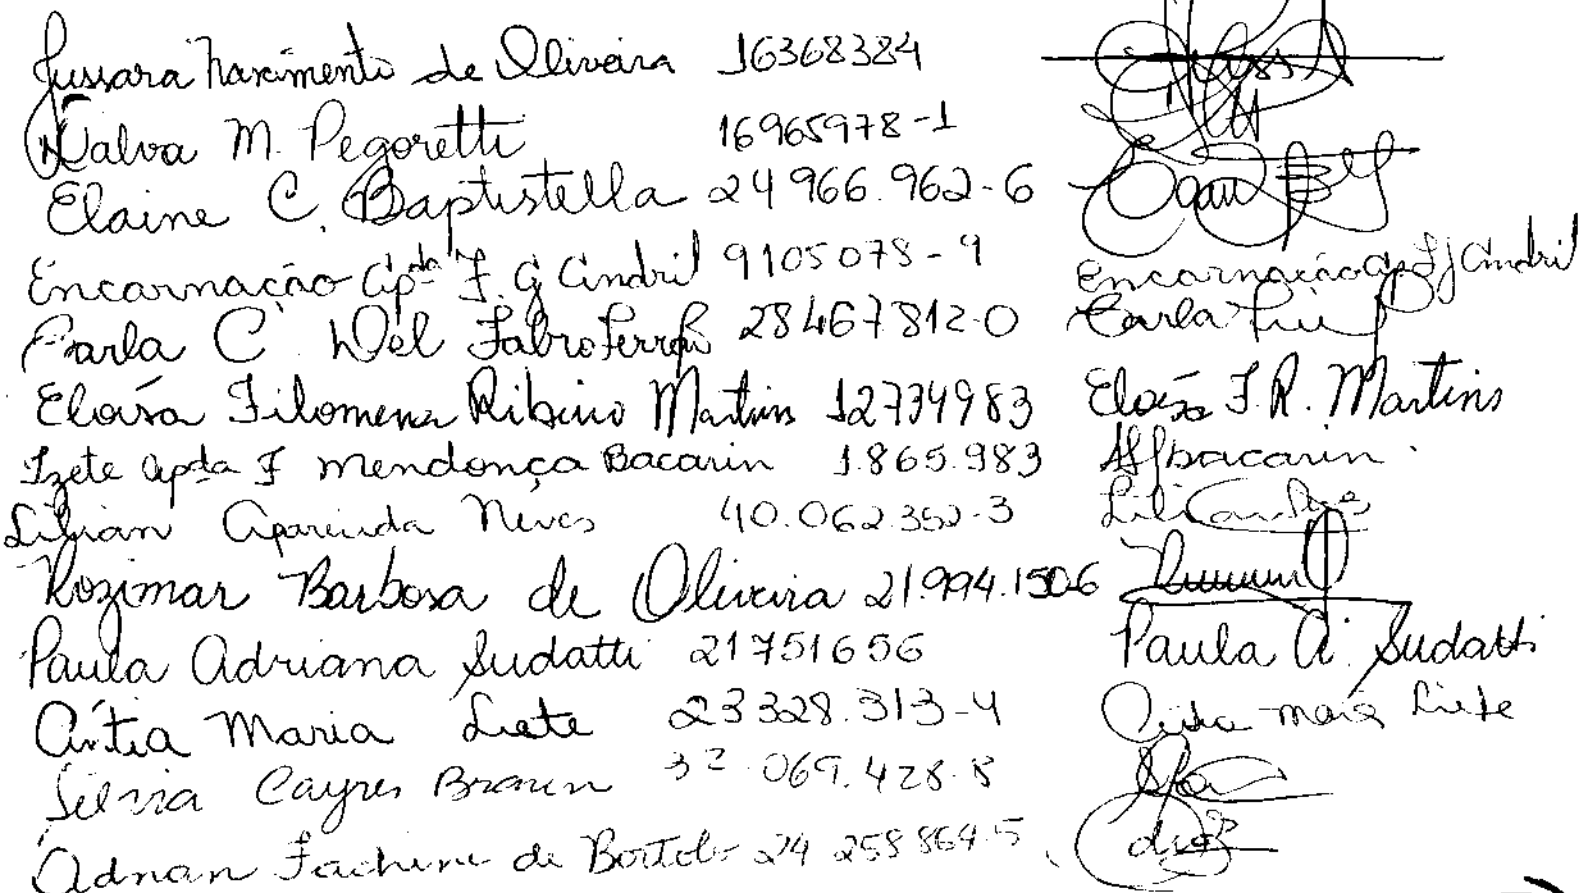 Jussara Nascimento de Oliveira 16368384
Dalva M. Pegoretti 16965978-1
Elaine C. Baptistella 24966.962-6
Encarnação Apda F. G Cindril 9105078-9 Encarnação Ap F G Cindril
Carla C. Del Fabro Ferrari 28467812-0 Carla
Eloísa Filomena Ribeiro Martins 12734983 Eloísa F. R. Martins
Izete Apda F Mendonça Bacarin 1.865.983 Bacarin
Lilian Aparecida Neves 40.062.352-3
Rozimar Barbosa de Oliveira 21.994.150-6
Paula Adriana Sudatti 21751656 Paula A. Sudatti
Cíntia Maria Liete 23328.313-4 Maria Liete
Silvia Cayres Braun 32.069.428-8
Adnan Fachini de Bortol 24 258 864-5